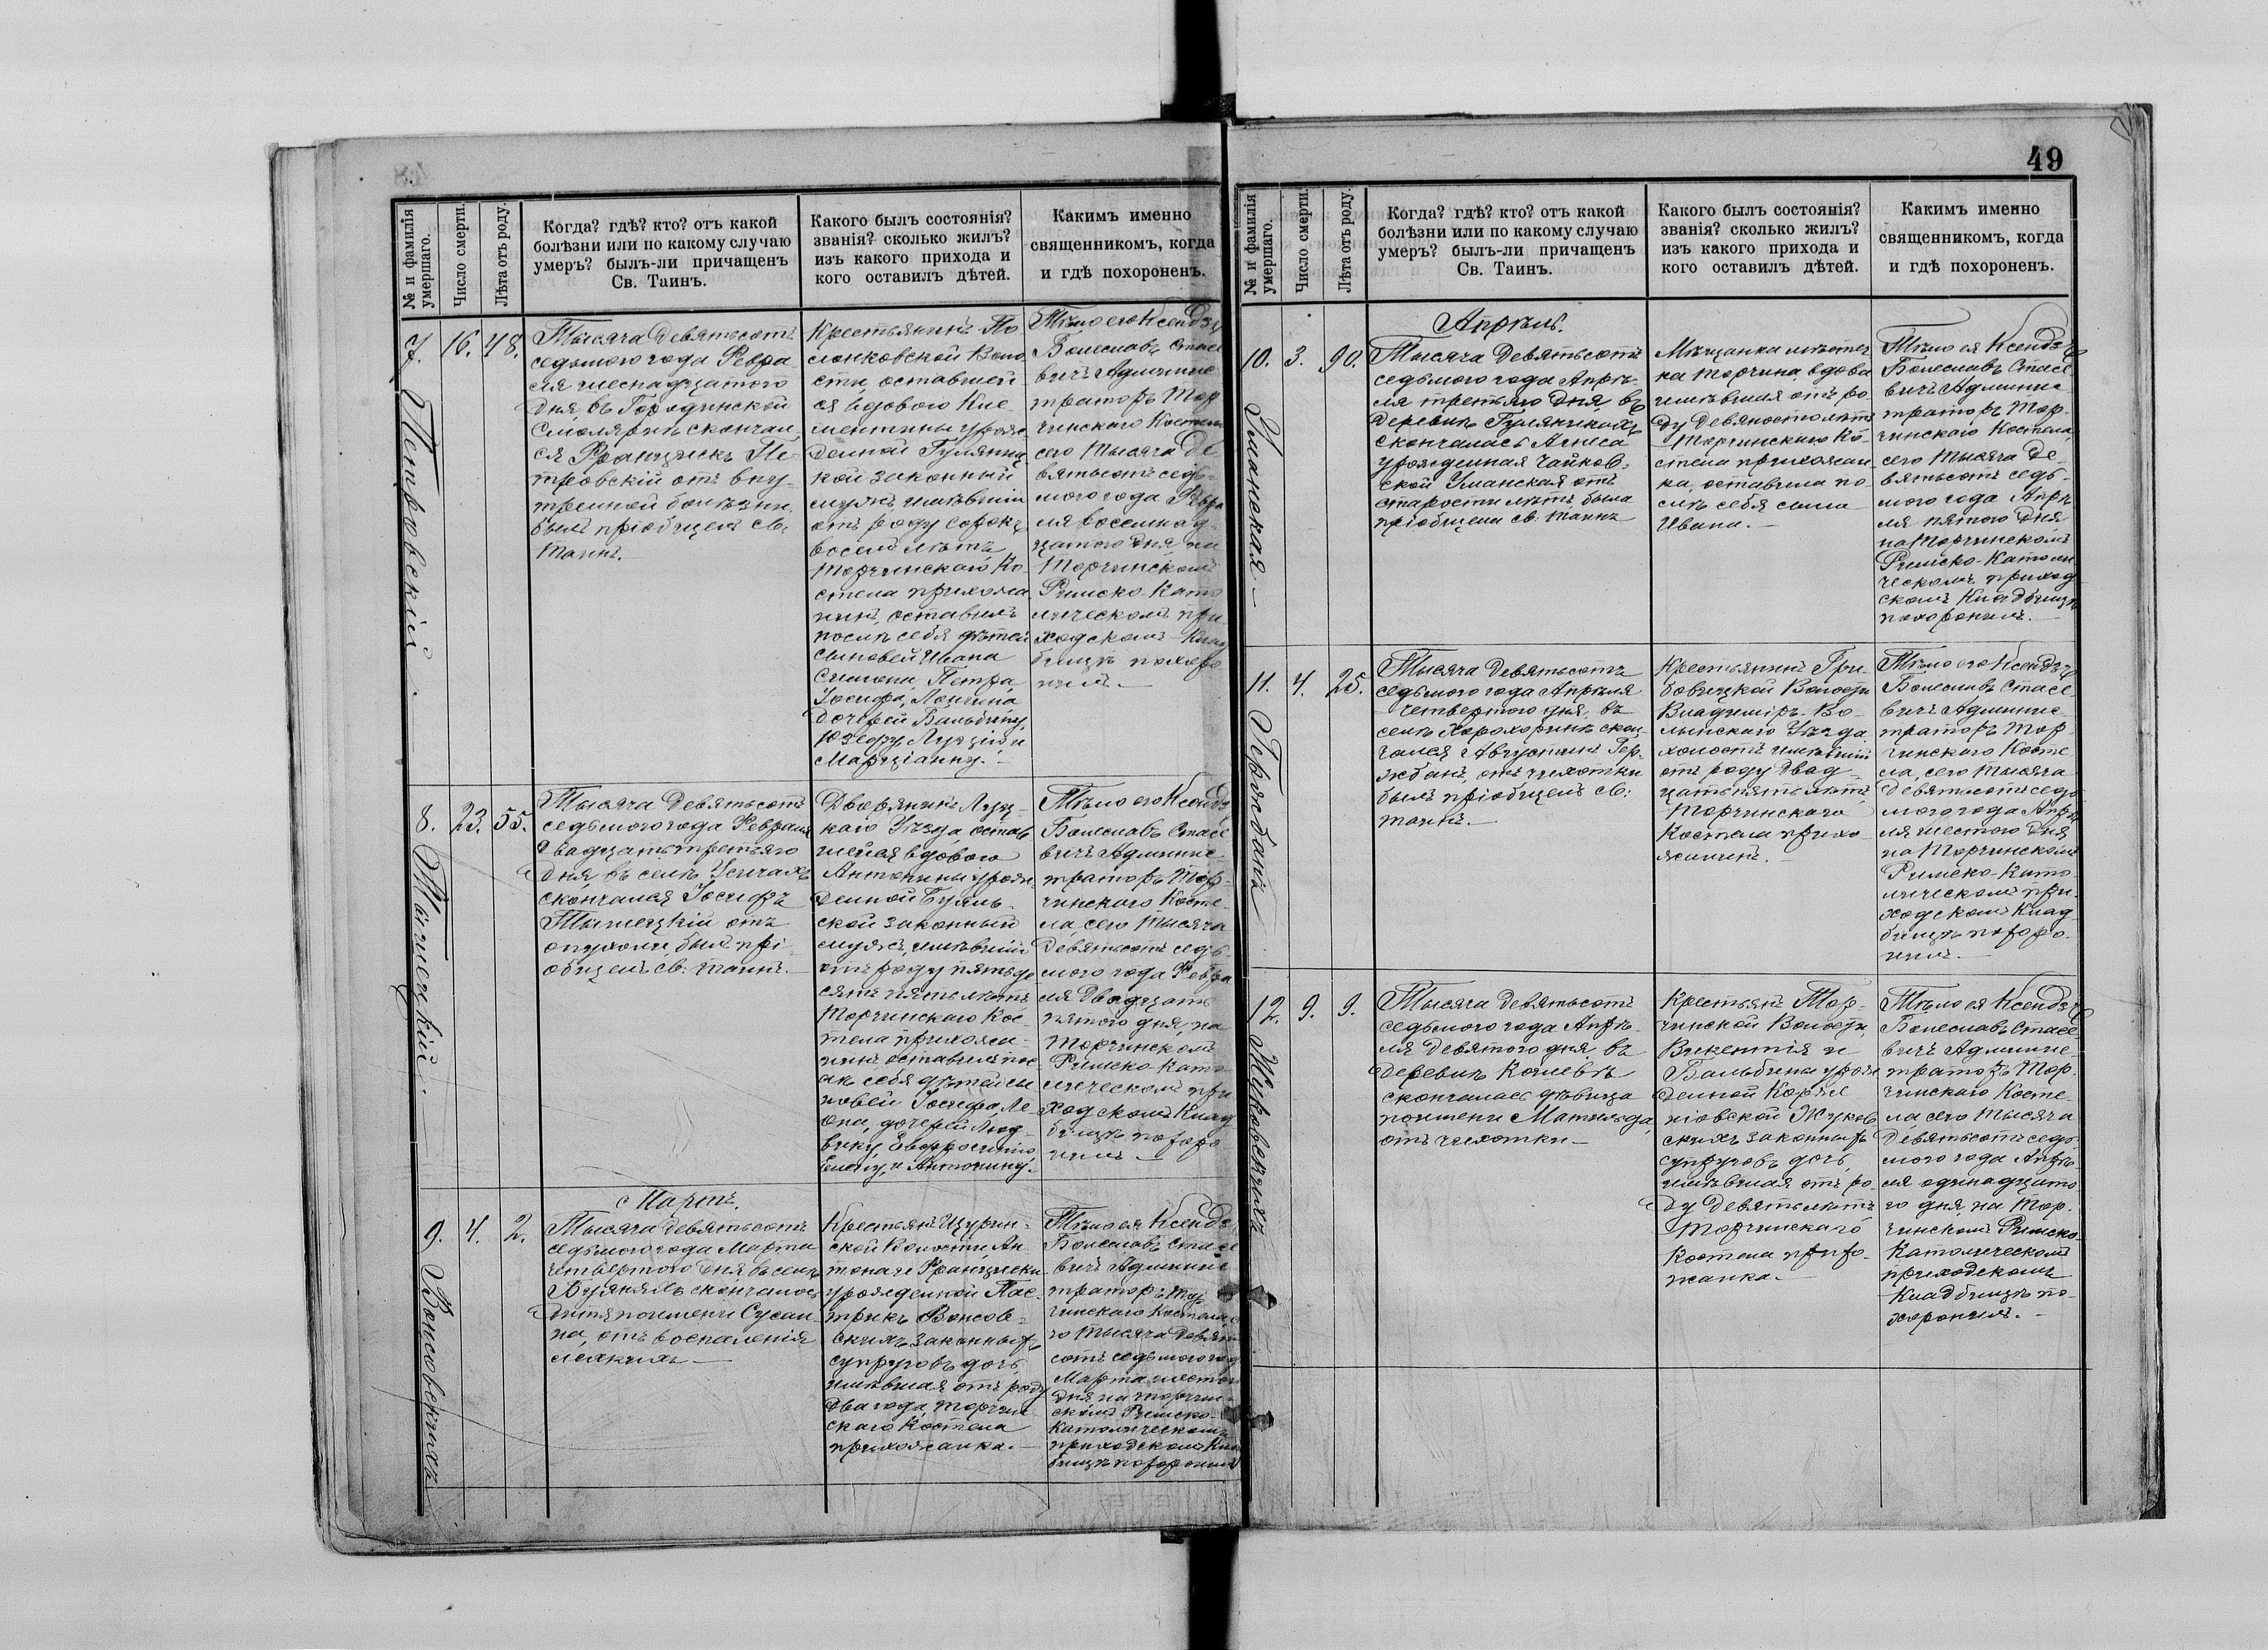 49
№ и фамилія
умершаго.
Число смерти.
Лѣта отъ роду.
Когда? гдѣ? кто? отъ какой
болѣзни или по какому случаю
умеръ? былъ-ли причащенъ
Св. Таинъ.
Какого былъ состоянія?
званія? сколько жилъ?
изъ какого прихода и
кого оставилъ дѣтей.
Какимъ именно
священникомъ, когда
и гдѣ похороненъ.
7. Петровскій.
16.
48.
Тысяча девятьсотъ
седьмого года Февра
ля шеснадцатого
дня, въ Городинской
Смолярнѣ скончал
ся Францискъ Пе-
тровскій отъ вну-
тренней болѣзни,
былъ пріобщенъ св.
таинъ.
Крестьянинъ По
лонковской Воло
сти, оставшей
ся вдовою Кле-
ментины урож
денной Гуляниц
кой законный
мужъ, имѣвшій
отъ роду сорокъ
восемь лѣтъ
Торчинскаго Ко-
стела прихожа
нинъ, оставилъ
послѣ себя дѣтей
сыновей Ивана
Симона, Петра,
Іосифа, Лонгина
дочерей Бальбину,
Юзефу, Луцію и
Марціанну.
Тѣло его Ксендзъ
Болеславъ Стасе
вичъ Админис
траторъ Тор
чинскаго Костела
сего тысяча де
вятьсотъ седь-
мого года Февра
ля восемнад-
цатого дня, на
Торчинскомъ
Римско-Като
лическомъ при
ходскомъ Клад
бищѣ похоро
нилъ.
8. Тымецкій.
23.
55.
Тысяча девятьсотъ
седьмого года Февраля
двадцать третьяго
дня, въ селѣ Усичахъ
скончался Іосифъ
Тымецкій отъ
опухоли, былъ прі-
общенъ св. таинъ.
Дворянинъ Луц-
каго Уѣзда, остав
шейся вдовою
Антонины урож-
денной Буяль-
ской законный
мужъ, имѣвшій
отъ роду пятьде
сятъ пять лѣтъ
Торчинскаго Кос-
тела прихожа-
нинъ, оставилъ пос
лѣ себя дѣтей сы
новей Іосифа, Ле-
она, дочерей Люд-
вику, Евфросинію,
Елену, и Антонину.
Тѣло его Ксендзъ
Болеславъ Стасе
вичъ Админис-
траторъ Тор-
чинскаго Косте-
ла, сего тысяча
девятьсотъ седь-
мого года Февра
ля двадцать
пятого дня, на
Торчинскомъ
Римско-Като-
лическомъ при
ходскомъ Клад
бищѣ похоро-
нилъ.
Мартъ.
9. Вонсовскихъ
4.
2.
Тысяча девятьсотъ
седьмого года Марта
четвертого дня въ селѣ
Буянахъ скончалось
дитя по имени Сусан-
на, отъ воспаленія
легкихъ.
Крестьянъ Щурин-
ской Волости, Ан
тона и Франциски
урожденной Пас-
трикъ Вонсов-
скихъ законныхъ
супруговъ дочь,
имѣвшая отъ роду
два года, Торчин-
скаго Костела
прихожанка.
Тѣло ея Ксендзъ
Болеславъ Стасе
вичъ Админис
траторъ Тор
чинскаго Костела, се
го тысяча девять
сотъ седьмого года
Марта шестого
дня, на Торчин-
скомъ Римско-
Католическомъ
приходскомъ Клад
бищѣ похоронилъ
№ и фамилія
умершаго.
Число смерти.
Лѣта отъ роду.
Когда? гдѣ? кто? отъ какой
болѣзни или по какому случаю
умеръ? былъ-ли причащенъ
Св. Таинъ.
Какого былъ состоянія?
званія? сколько жилъ?
изъ какого прихода и
кого оставилъ дѣтей.
Какимъ именно
священникомъ, когда
и гдѣ похороненъ.
Апрѣль.
10. Уманская
3.
90.
Тысяча девятьсотъ
седьмого года Апрѣ-
ля третьяго дня, въ
деревнѣ Гуляникахъ
скончалась Агнеса
урожденная Чайков-
ской Уманская отъ
старости лѣтъ, была
пріобщена св. таинъ
Мѣщанка мѣстеч
ка Торчина, вдова
имѣвшая отъ ро-
ду девяносто лѣтъ
Торчинскаго Ко-
стела прихожан-
ка, оставила по-
слѣ себя сына
Ивана.
Тѣло ея Ксендзъ
Болеславъ Стасе
вичъ Админис
траторъ Тор-
чинскаго Костела,
сего тысяча де-
вятьсотъ седь-
мого года Апрѣ
ля пятого дня
на Торчинскомъ
Римско-Католи
ческомъ приход
скомъ Кладбищѣ
похоронилъ.
11. Гержбанъ
4.
25.
Тысяча девятьсотъ
седьмого года Апрѣля
четвертого дня, въ
селѣ Хорохоринѣ скон
чался Августинъ Гер-
жбанъ, отъ чихотки
былъ пріобщенъ св.
таинъ.
Крестьянинъ Гри-
бовицкой Волости
Владиміръ-Во-
лынскаго Уѣзда
холостъ имѣвшій
отъ роду двад-
цать пять лѣтъ
Торчинскаго
Костела прихо-
жанинъ.
Тѣло его Ксендзъ
Болеславъ Стасе-
вичъ Админис-
траторъ Тор-
чинскаго Косте
ла, сего тысяча
девятьсотъ седь
мого года Апрѣ
ля шестого дня
на Торчинскомъ
Римско-Като-
лическомъ при-
ходскомъ Клад-
бищѣ похоро-
нилъ.
12. Жуковскихъ
9.
9.
Тысяча девятьсотъ
седьмого года Апрѣ-
ля девятого дня, въ
деревнѣ Колпевѣ
скончалась дѣвица
по имени Матильда,
отъ чихотки
Крестьянъ Тор-
чинской Волости,
Викентія и
Бальбины урож
денной Корже
ніовской Жуков
скихъ законныхъ
супруговъ дочь,
имѣвшая отъ ро-
ду девять лѣтъ
Торчинскаго
Костела прихо-
жанка.
Тѣло ея Ксендзъ
Болеславъ Стасе-
вичъ Админис-
траторъ Тор-
чинскаго Косте-
ла, сего тысяча
девятьсотъ седь
мого года Апрѣ-
ля одинадцато-
го дня, на Тор-
чинскомъ Римско-
Католическомъ
приходскомъ
Кладбищѣ по-
хоронилъ.